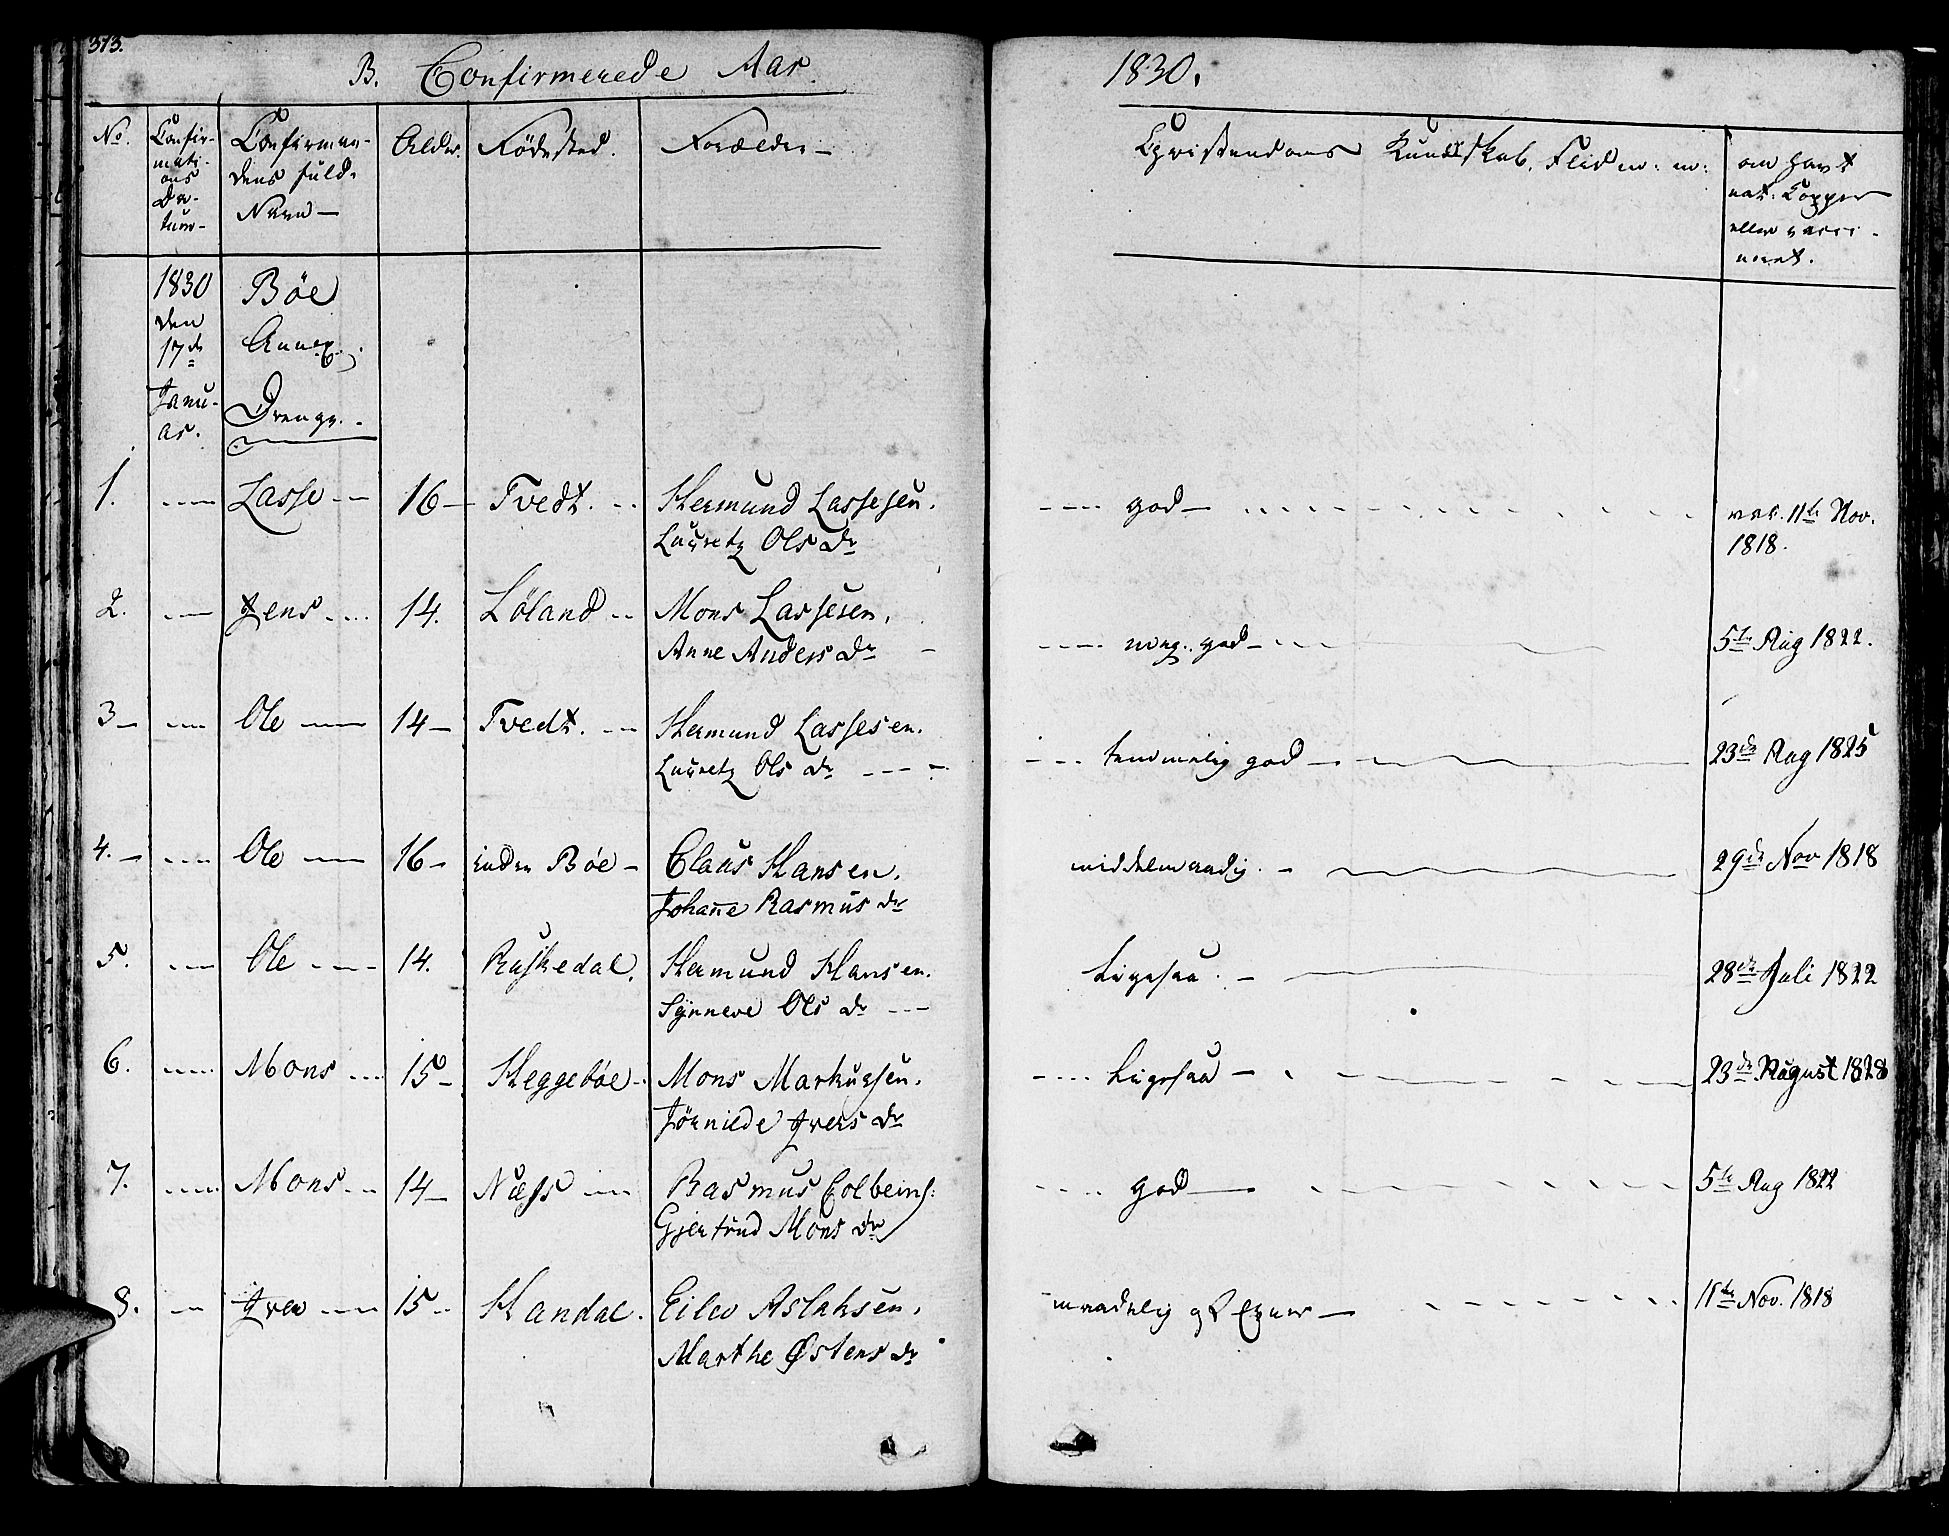 373.
B. Confirmerede Aar 1830.
No. Confirmati- ons Da- tum- Confirman- dens fulde Navn- Alder. Fødested. Forældre- Christendoms Kundskab, Flid m: m: om havt nat: Copper eller vacci- neret.
1830 den 17de Janu- ar. Bøe Annex. Drenge.
1. Lasse 16 Tvedt. Hermund Lassesen. god vac. 11te Nov. 1818.
Lauretz Ols dr
2. Jens 14. Løland Mons Lassesen, meg. god 5te Aug 1822.
Anne Anders dr
3 Ole 14 Tvedt. Hermund Lassesen. temmelig god 23de Aug 1825
Lauretz Ols dr
4. Ole 16 indre Bøe Claus Hansen. middelmaadig. 29de Nov 1818
Johanne Rasmus dr
5. Ole 14. Raskedal. Hermund Hansen. Ligesaa. 28de Juli 1822
Synneve Ols dr
6. Mons 15 Heggebøe Mons Markussen. Ligesaa 23de August 1828
Jørnilde Ivers dr
7. Mons 14 Næss Rasmus Colbeins: god 5te Aug 1822
Gjertrud Mons dr
8. Iver 15 Handal. Eilev Aslaksen. maadelig 11te Nov. 1818
Marthe Østens dr